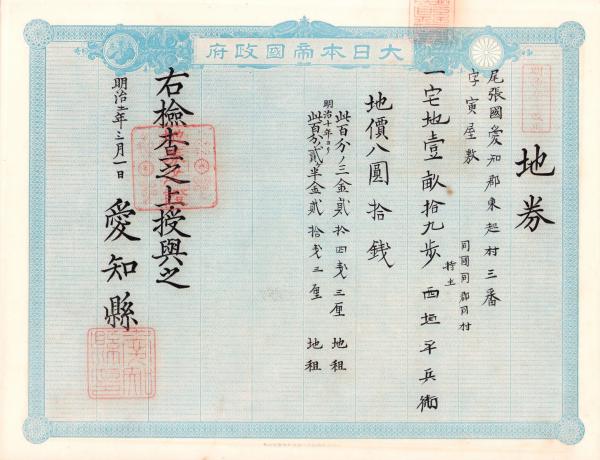 大日本帝國政府
地券
尾張國愛知郡東起村三番
字寅屋敷
同國同郡同村
一宅地壹畝拾九歩 持主 西垣平兵衛
地價八圓拾銭
此百分ノ三金貳拾四戔三厘 地租
明治十年ヨリ
此百分ノ貳半金貳拾戔三厘 地租
右檢査之上授與之
明治十一年三月一日
愛知縣